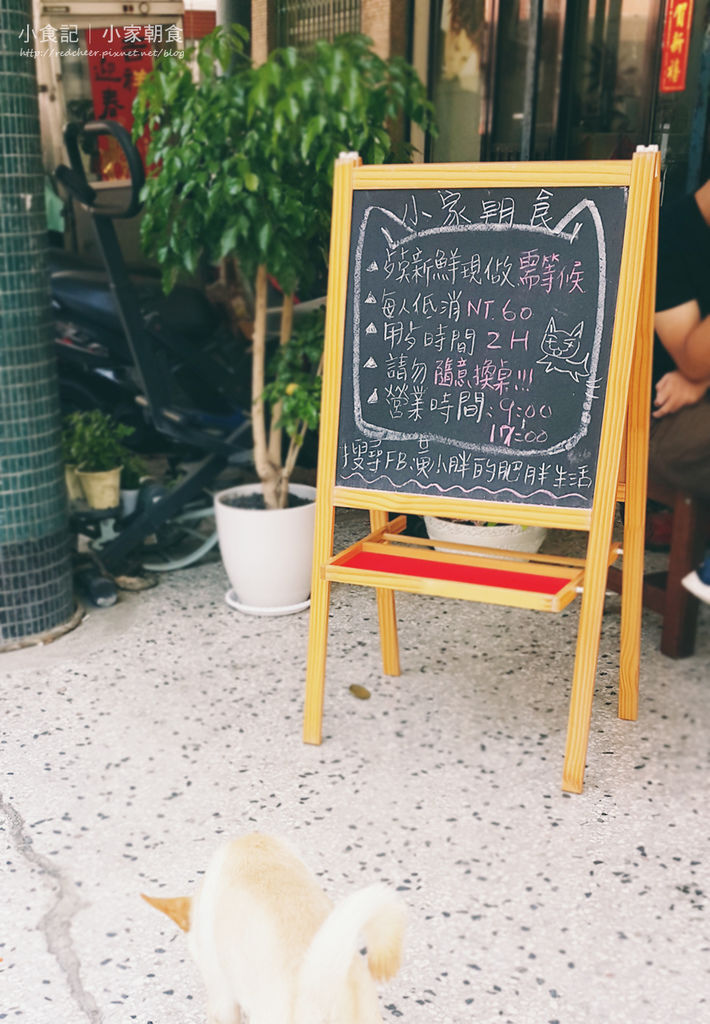 小食記│小家朝食
http://redcheer.pixnet.net/blog
迎春
賀新禧
小家朝食
新鮮現做需等候
每人低消NT.60
用歺時間 2H
請勿隨意換桌!!!
營業時間:9:00
17:00
搜尋FB:黃小胖的肥胖生活